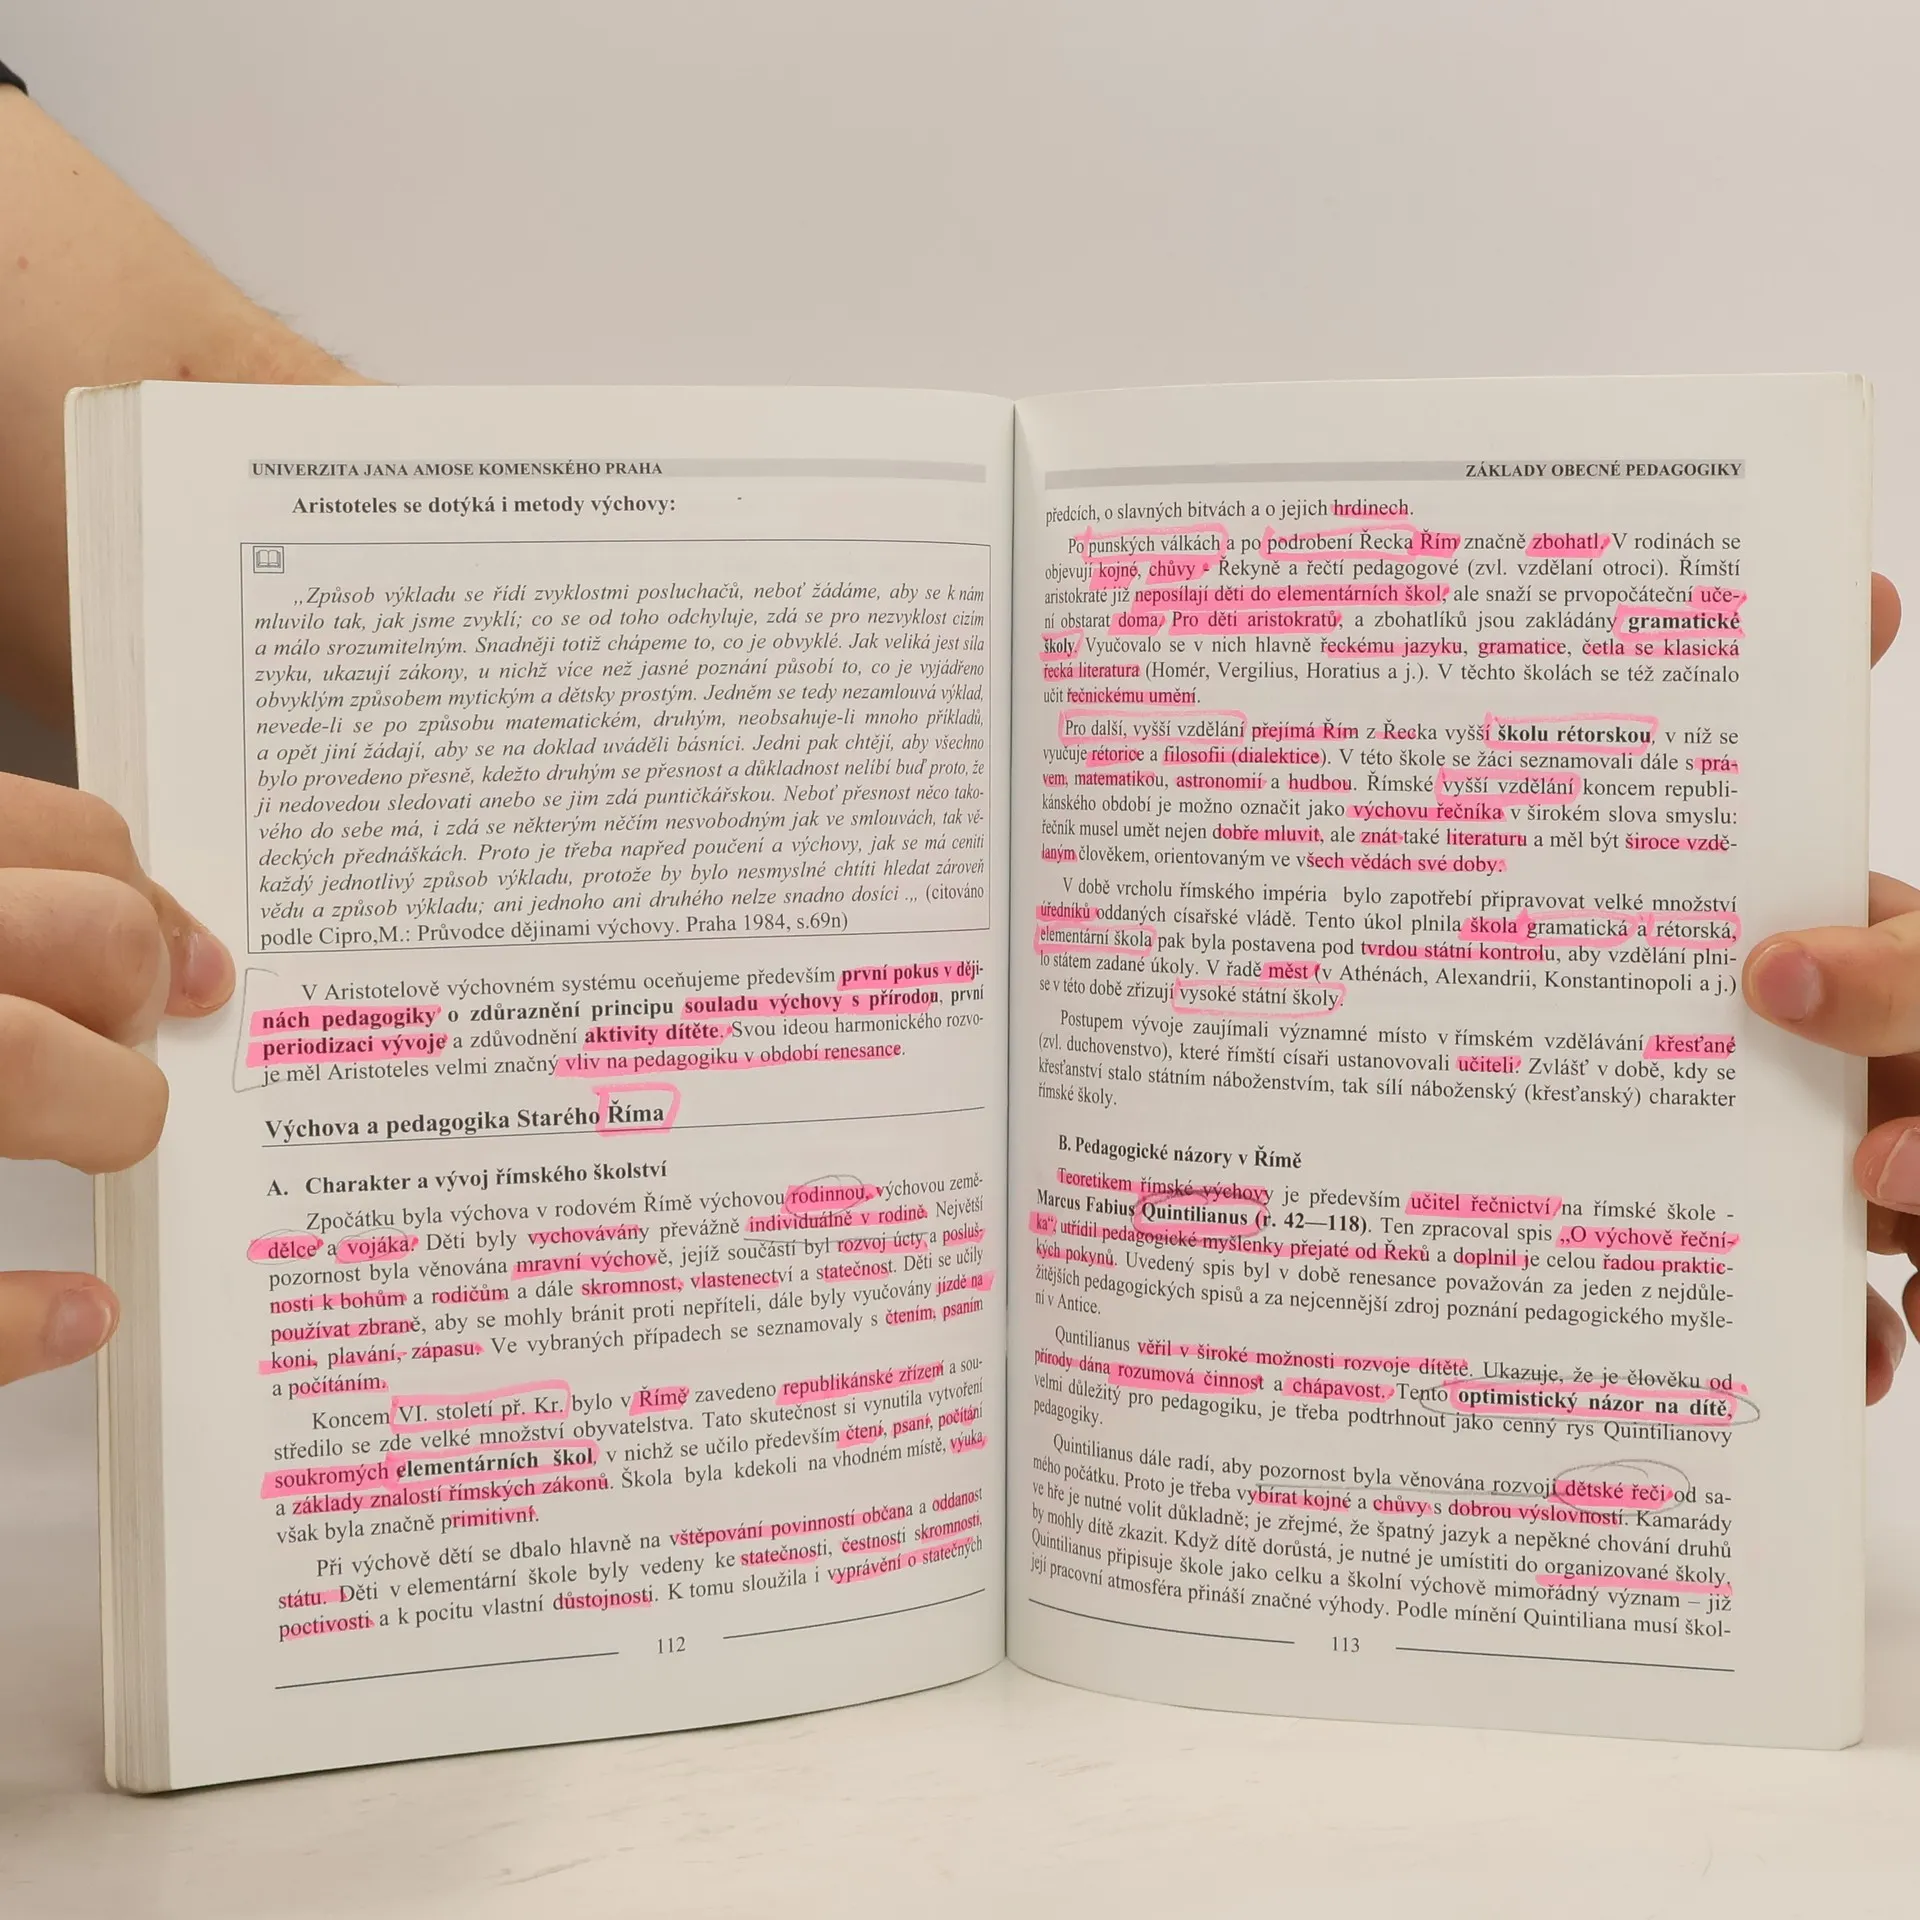 UNIVERZITA JANA AMOSE KOMENSKÉHO PRAHA
Aristoteles se dotýká i metody výchovy:
„Způsob výkladu se řídí zvyklostmi posluchačů, neboť žádáme, aby se k nám
mluvilo tak, jak jsme zvyklí; co se od toho odchyluje, zdá se pro nezvyklost cizím
a málo srozumitelným. Snadněji totiž chápeme to, co je obvyklé. Jak veliká jest síla
zvyku, ukazují zákony, u nichž více než jasné poznání působí to, co je vyjádřeno
obvyklým způsobem mytickým a dětsky prostým. Jedněm se tedy nezamlouvá výklad,
nevede-li se po způsobu matematickém, druhým, neobsahuje-li mnoho příkladů,
a opět jiní žádají, aby se na doklad uváděli básníci. Jedni pak chtějí, aby všechno
bylo provedeno přesně, kdežto druhým se přesnost a důkladnost nelíbí buď proto, že
ji nedovedou sledovati anebo se jim zdá puntičkářskou. Neboť přesnost něco tako-
vého do sebe má, i zdá se některým něčím nesvobodným jak ve smlouvách, tak vě-
deckých přednáškách. Proto je třeba napřed poučení a výchovy, jak se má ceniti
každý jednotlivý způsob výkladu, protože by bylo nesmyslné chtíti hledat zároveň
vědu a způsob výkladu; ani jednoho ani druhého nelze snadno dosíci .„ (citováno
podle Cipro,M.: Průvodce dějinami výchovy. Praha 1984, s.69n)
V Aristotelově výchovném systému oceňujeme především první pokus v ději-
nách pedagogiky o zdůraznění principu souladu výchovy s přírodou, první
periodizaci vývoje a zdůvodnění aktivity dítěte. Svou ideou harmonického rozvo-
je měl Aristoteles velmi značný vliv na pedagogiku v období renesance.
Výchova a pedagogika Starého Říma
A. Charakter a vývoj římského školství
Zpočátku byla výchova v rodovém Římě výchovou rodinnou, výchovou země-
dělce a vojáka. Děti byly vychovávány převážně individuálně v rodině. Největší
pozornost byla věnována mravní výchově, jejíž součástí byl rozvoj úcty a posluš-
nosti k bohům a rodičům a dále skromnost, vlastenectví a statečnost. Děti se učily
používat zbraně, aby se mohly bránit proti nepříteli, dále byly vyučovány jízdě na
koni, plavání, zápasu. Ve vybraných případech se seznamovaly s čtením, psaním
a počítáním.
Koncem VI. století př. Kr. bylo v Římě zavedeno republikánské zřízení a sou-
středilo se zde velké množství obyvatelstva. Tato skutečnost si vynutila vytvoření
soukromých elementárních škol, v nichž se učilo především čtení, psaní, počítání
a základy znalostí římských zákonů. Škola byla kdekoli na vhodném místě, výuka
však byla značně primitivní.
Při výchově dětí se dbalo hlavně na vštěpování povinností občana a oddanost
státu. Děti v elementární škole byly vedeny ke statečnosti, čestnosti skromnosti,
poctivosti a k pocitu vlastní důstojnosti. K tomu sloužila i vyprávění o statečných
112
ZÁKLADY OBECNÉ PEDAGOGIKY
předcích, o slavných bitvách a o jejich hrdinech.
Po punských válkách a po podrobení Řecka Řím značně zbohatl. V rodinách se
objevují kojné, chůvy - Řekyně a řečtí pedagogové (zvl. vzdělaní otroci). Římští
aristokraté již neposílají děti do elementárních škol, ale snaží se prvopočáteční uče-
ní obstarat doma. Pro děti aristokratů, a zbohatlíků jsou zakládány gramatické
školy. Vyučovalo se v nich hlavně řeckému jazyku, gramatice, četla se klasická
řecká literatura (Homér, Vergilius, Horatius a j.). V těchto školách se též začínalo
učit řečnickému umění.
Pro další, vyšší vzdělání přejímá Řím z Řecka vyšší školu rétorskou, v níž se
vyučuje rétorice a filosofii (dialektice). V této škole se žáci seznamovali dále s prá-
vem, matematikou, astronomií a hudbou. Římské vyšší vzdělání koncem republi-
kánského období je možno označit jako výchovu řečníka v širokém slova smyslu:
řečník musel umět nejen dobře mluvit, ale znát také literaturu a měl být široce vzdě-
laným člověkem, orientovaným ve všech vědách své doby.
V době vrcholu římského impéria bylo zapotřebí připravovat velké množství
úředníků oddaných císařské vládě. Tento úkol plnila škola gramatická a rétorská,
elementární škola pak byla postavena pod tvrdou státní kontrolu, aby vzdělání plni-
lo státem zadané úkoly. V řadě měst (v Athénách, Alexandrii, Konstantinopoli a j.)
se v této době zřizují vysoké státní školy.
Postupem vývoje zaujímali významné místo v římském vzdělávání křesťané
(zvl. duchovenstvo), které římští císaři ustanovovali učiteli. Zvlášť v době, kdy se
křesťanství stalo státním náboženstvím, tak sílí náboženský (křesťanský) charakter
římské školy.
B. Pedagogické názory v Římě
Teoretikem římské výchovy je především učitel řečnictví na římské škole -
Marcus Fabius Quintilianus (r. 42—118). Ten zpracoval spis „O výchově řeční-
ka“, utřídil pedagogické myšlenky přejaté od Řeků a doplnil je celou řadou praktic-
kých pokynů. Uvedený spis byl v době renesance považován za jeden z nejdůle-
žitějších pedagogických spisů a za nejcennější zdroj poznání pedagogického myšle-
ní v Antice.
Quntilianus věřil v široké možnosti rozvoje dítěte. Ukazuje, že je člověku od
přírody dána rozumová činnost a chápavost. Tento optimistický názor na dítě,
velmi důležitý pro pedagogiku, je třeba podtrhnout jako cenný rys Quintilianovy
pedagogiky.
Quintilianus dále radí, aby pozornost byla věnována rozvoji dětské řeči od sa-
mého počátku. Proto je třeba vybírat kojné a chůvy s dobrou výslovností. Kamarády
ve hře je nutné volit důkladně; je zřejmé, že špatný jazyk a nepěkné chování druhů
by mohly dítě zkazit. Když dítě dorůstá, je nutné je umístiti do organizované školy.
Quintilianus připisuje škole jako celku a školní výchově mimořádný význam – již
její pracovní atmosféra přináší značné výhody. Podle mínění Quintiliana musí škol-
113